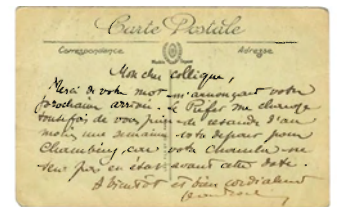 Carte Postale
Correspondance Adresse
Mon cher collègue,
Merci de votre mot m'annonçant votre
prochaine arrivée. Le Préfet me charge
toutefois de vous prier de retarder d'au
moins une semaine votre départ pour
Chambéry, car votre chambre ne
sera pas en état avant cette date.
A bientôt et bien cordialement